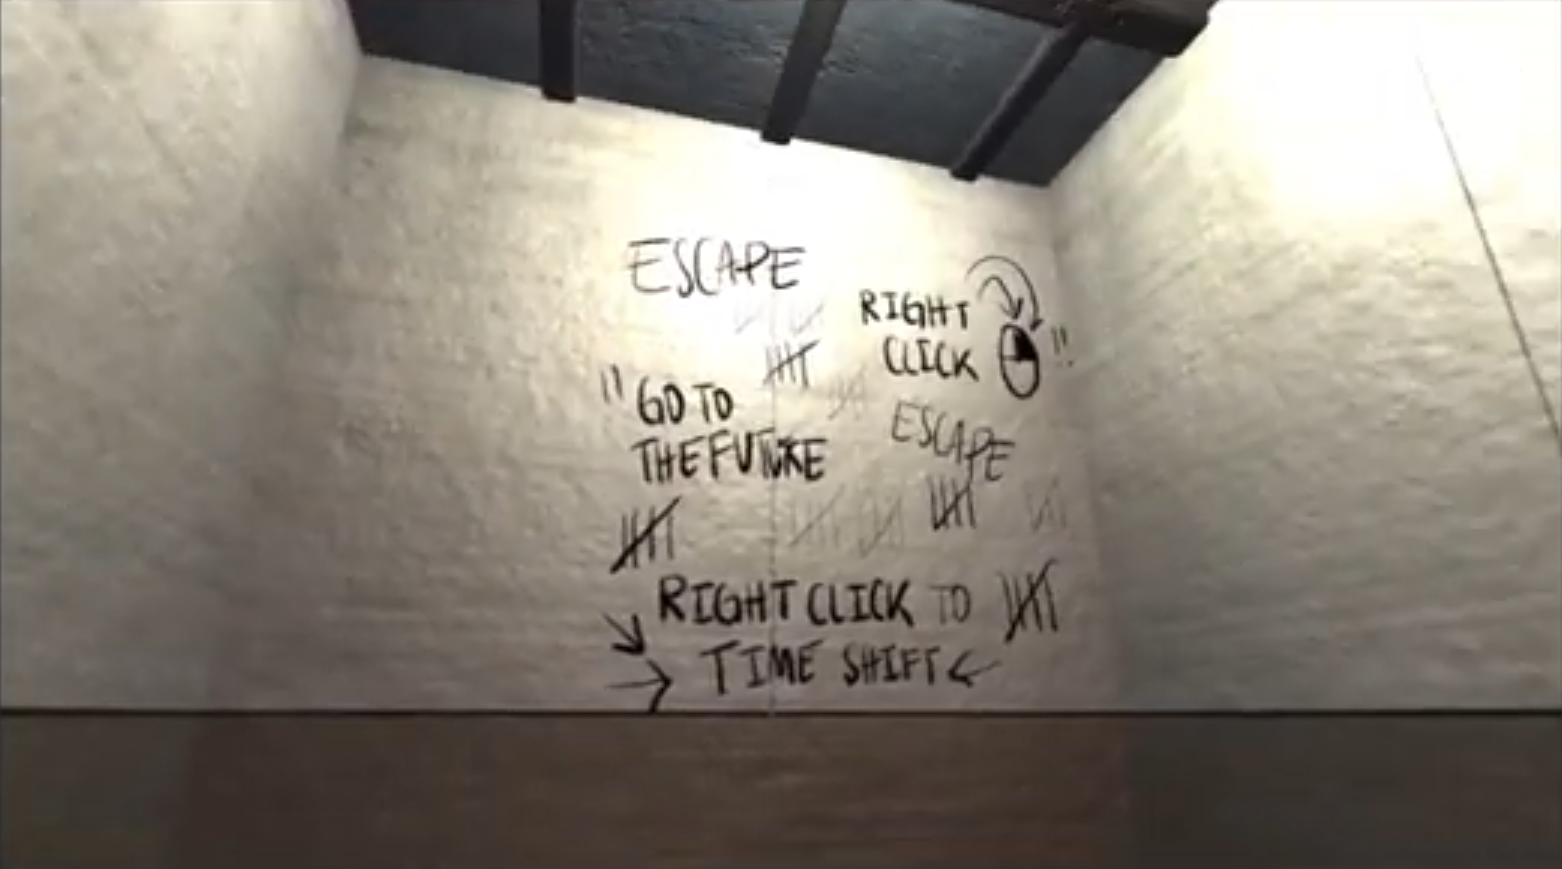 ESCAPE
RIGHT
CLICK "
" GO TO
THE FUTURE
ESCAPE
RIGHT CLICK TO
TIME SHIFT